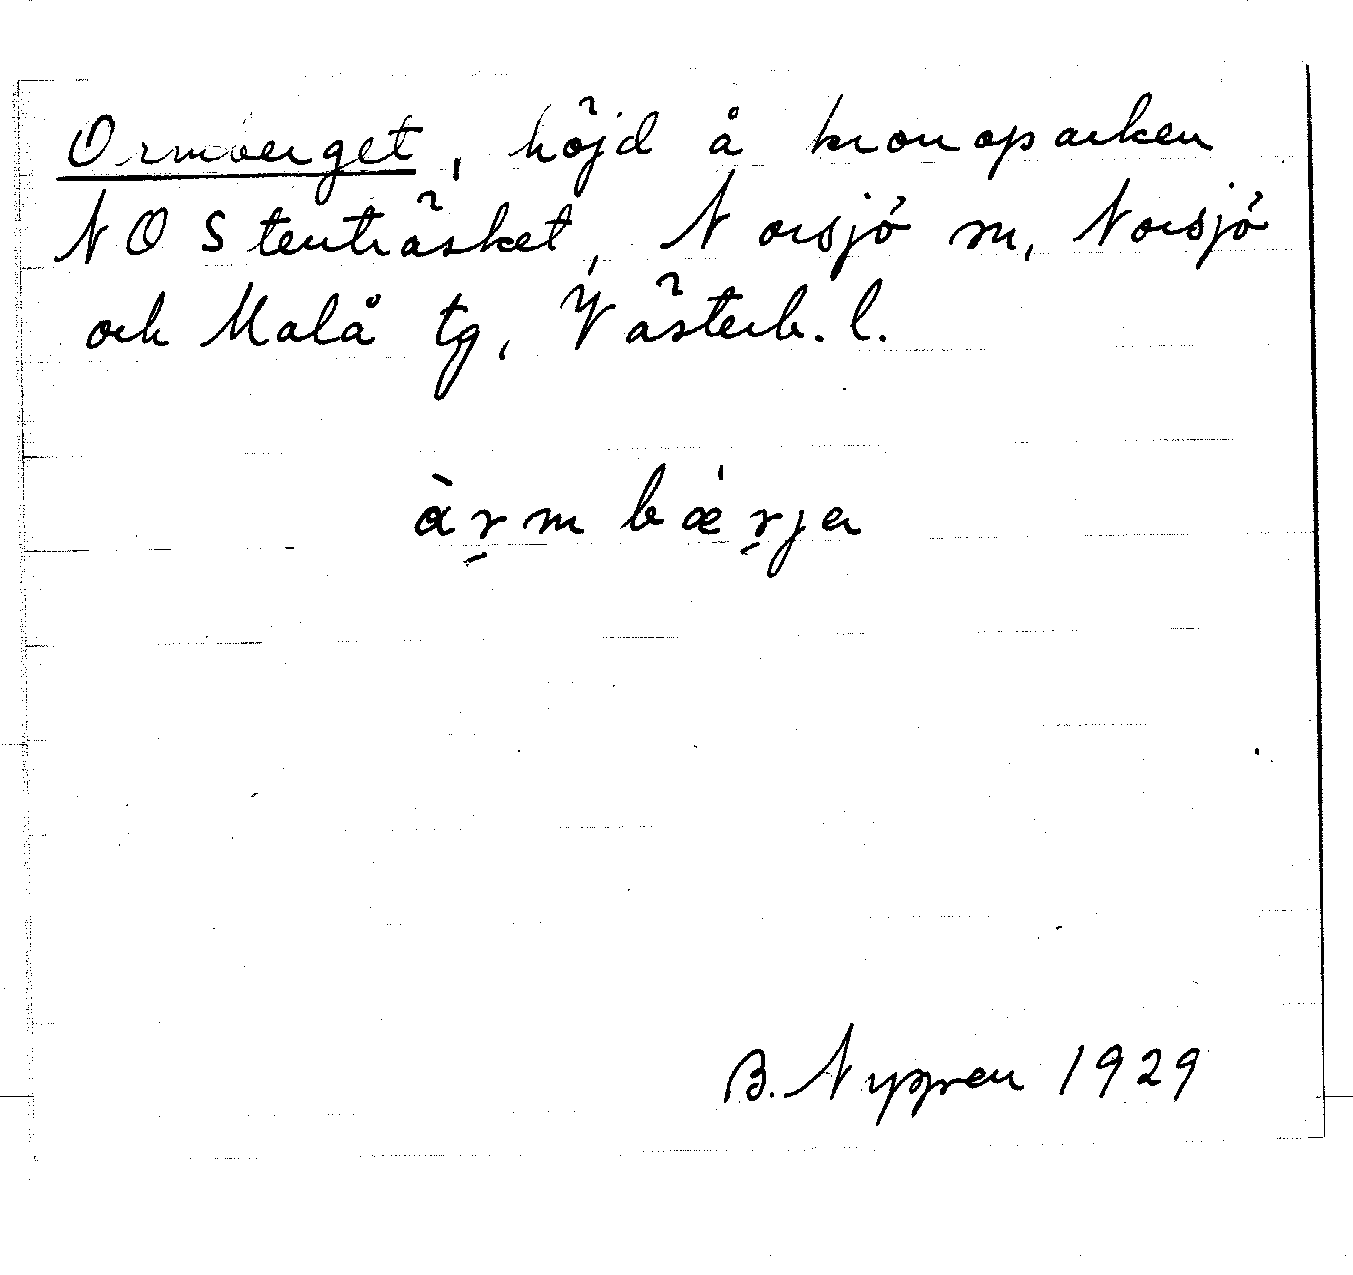 Ormberget, höjd å kronoparken
NO Stenträsket, Norsjö sn, Norsjö
och Malå tg, Västerb. l.
àr̠m bǽr̠ja
B. Nygren 1929